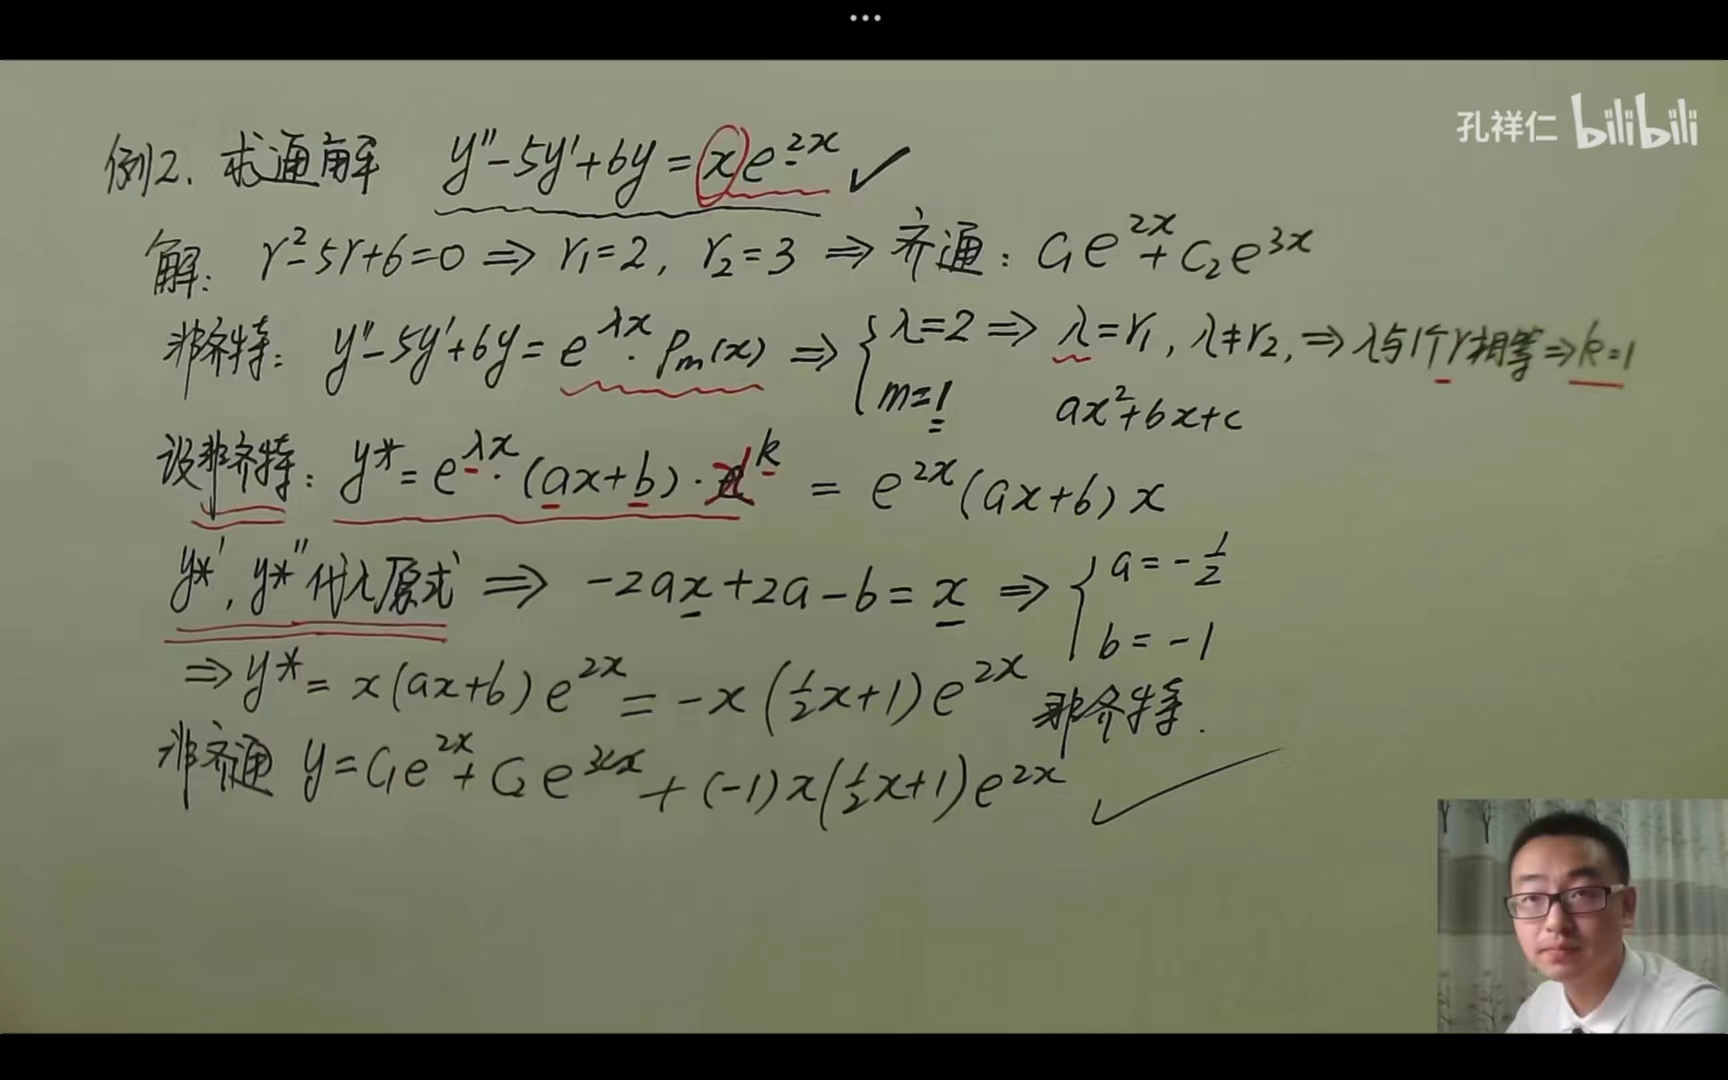 ...
孔祥仁 bilibili
例2. 求通解 y''-5y'+6y=xe^{2x} ✓
解: r²-5r+6=0 ⇒ r₁=2, r₂=3 ⇒ 齐通: C₁e^{2x}+C₂e^{3x}
非齐特: y''-5y'+6y=e^{λx}·Pₘ(x) ⇒ { λ=2 ⇒ λ=r₁, λ≠r₂, ⇒ λ与1个r相等 ⇒ k=1
m=1 ax²+bx+c
设非齐特: y*=e^{λx}·(ax+b)·x^k = e^{2x}(ax+b)x
y*', y*''代入原式 ⇒ -2ax+2a-b=x ⇒ { a=-1/2
b=-1
⇒ y*=x(ax+b)e^{2x}=-x(1/2x+1)e^{2x} 非齐特.
非齐通 y=C₁e^{2x}+C₂e^{3x}+(-1)x(1/2x+1)e^{2x} ✓